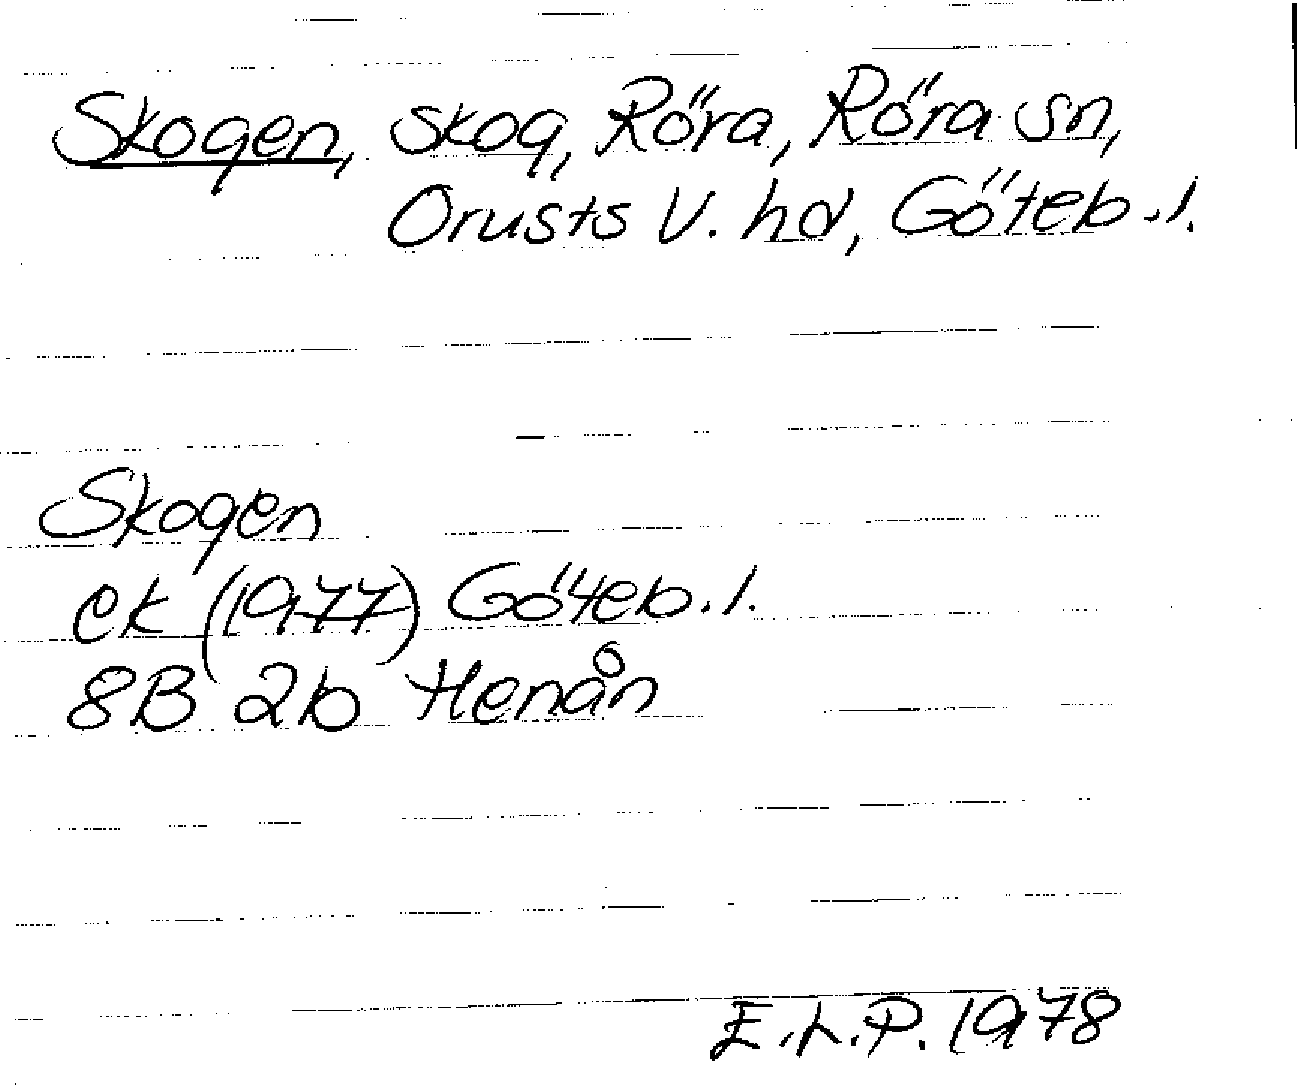 Skogen, skog, Röra, Röra sn,
Orusts V. hd, Göteb.l.
Skogen
ek (1977) Göteb.l.
8B 2b Henån
E.L.P. 1978